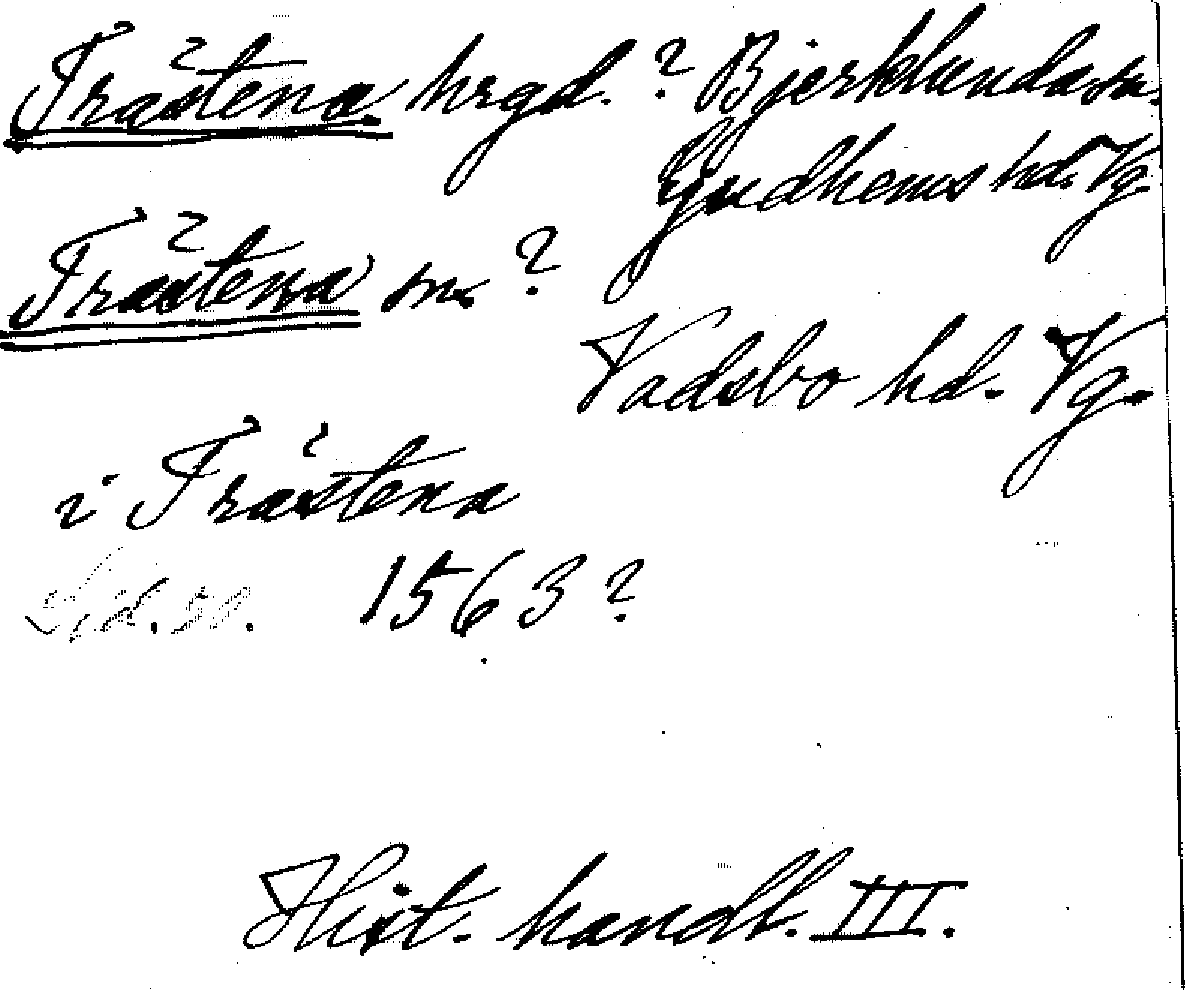 Trästena hrgd. ? Bjerklunda sn.
Gudhems hd. Vg.
Trästena sn. ?
Vadsbo hd. Vg.
i Trästena
Sid. 50. 1563 ?
Hist. handl. III.